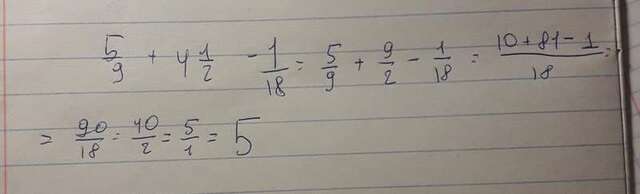 5/9 + 4 1/2 - 1/18 = 5/9 + 9/2 - 1/18 = (10+81-1)/18 =
= 90/18 = 40/2 = 5/1 = 5